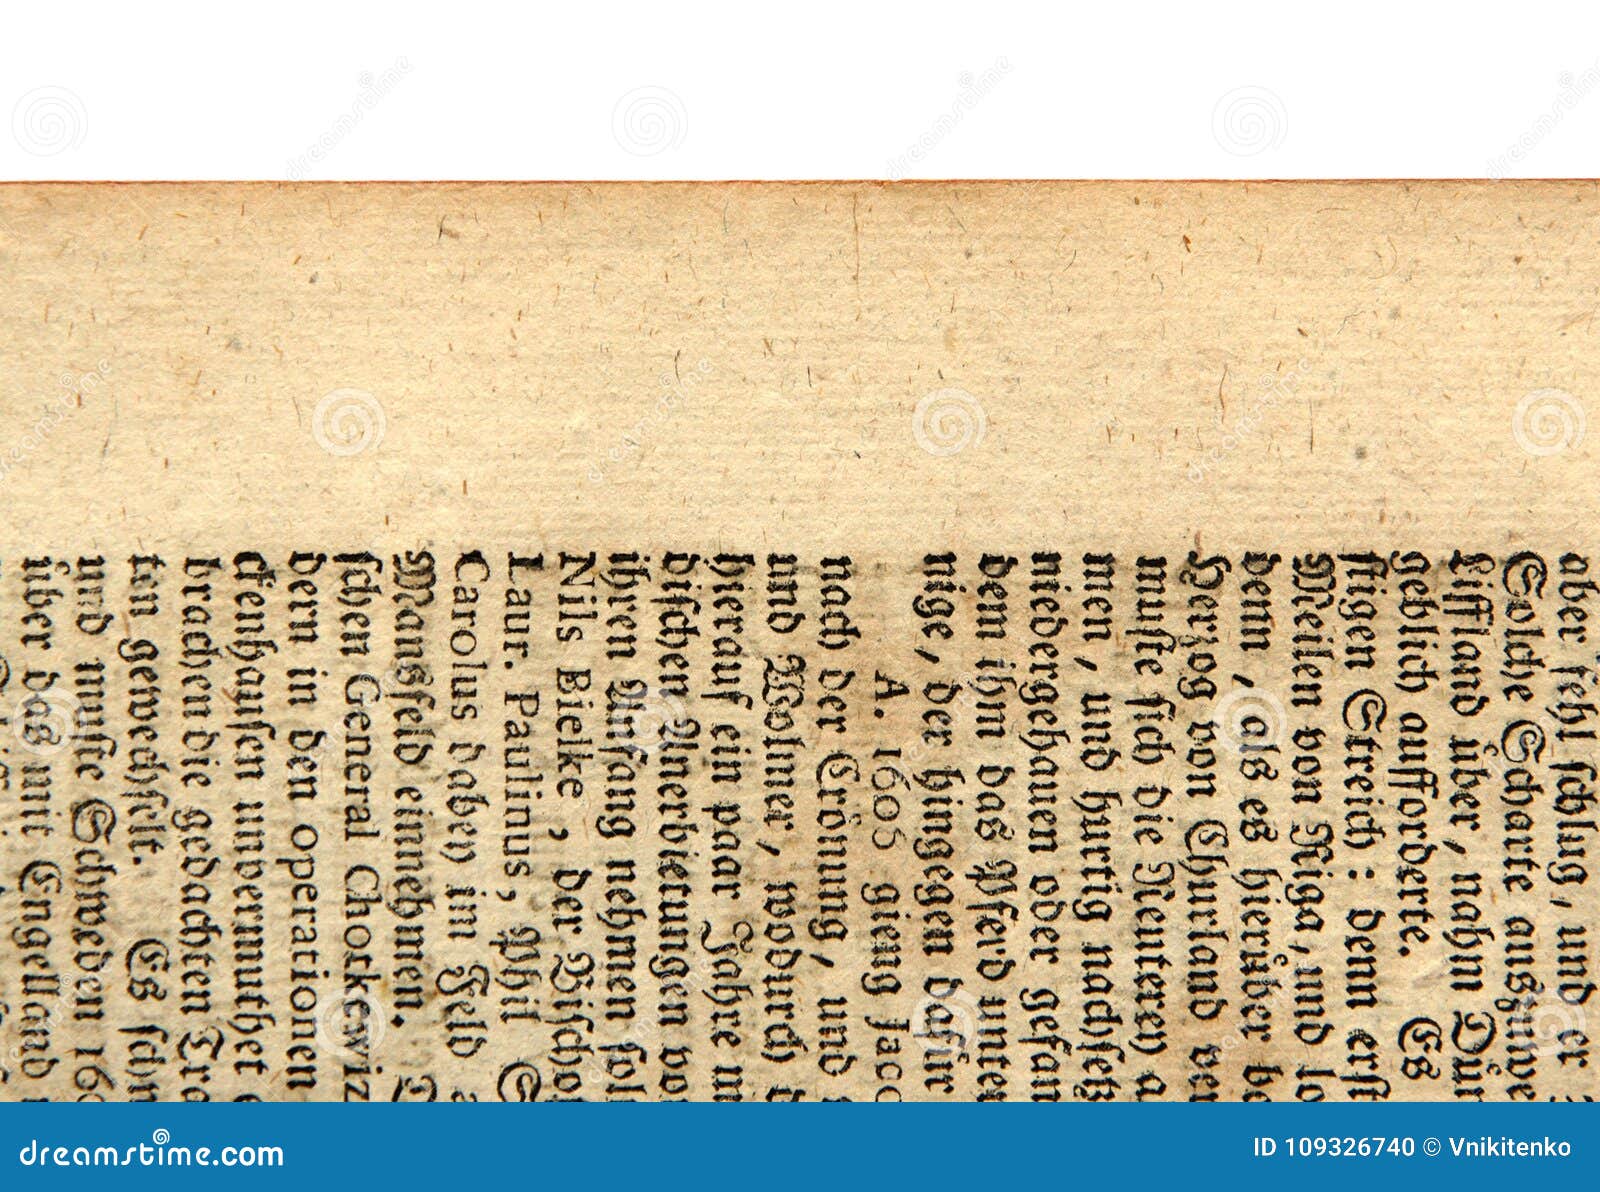 aber fehl schlug, und er
Solche Scharte auszuwe
Liffland über, nahm Dün
geblich aufforderte. Es
stigen Streich: denn erst
Meilen von Riga, und lo
denn, als es hierüber
Hertzog von Churland ver
muste sich die Reuterey a
men, und hurtig nachsetz
niedergehauen oder gefan
dem ihm das Pferd unter
nige, der hingegen dafür
A. 1605 gieng Jaco
nach der Crönung, und
und Wolmer, wodurch
hierauf ein paar Jahre
dischen Anerbietungen vo
ihren Anfang nehmen sol
Nils Bielke, der Bischo
Laur. Paulinus, Phil
Carolus dabey im Feld
Mansfeld einnehmen.
schen General Chotkewiz
dern in den operationen
ckenhausen unvermuthet
brachen die gedachten
ten gewechselt. Es
und muste Schweden 16
über das mit Engelland
dreamstime.com
ID 109326740 © Vnikitenko